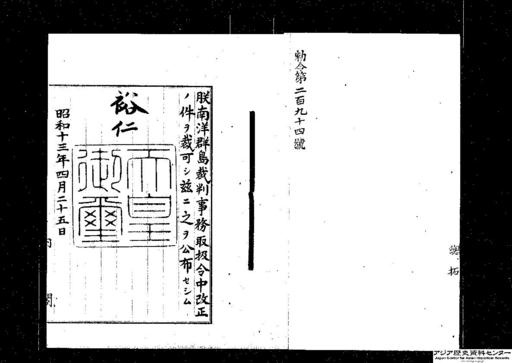 勅令第二百九十四號
朕南洋群島裁判事務取扱令中改正
ノ件ヲ裁可シ茲ニ之ヲ公布セシム
裕仁
天皇
御璽
昭和十三年四月二十五日
内閣
拓
アジア歴史資料センター
Japan Center for Asian Historical Records